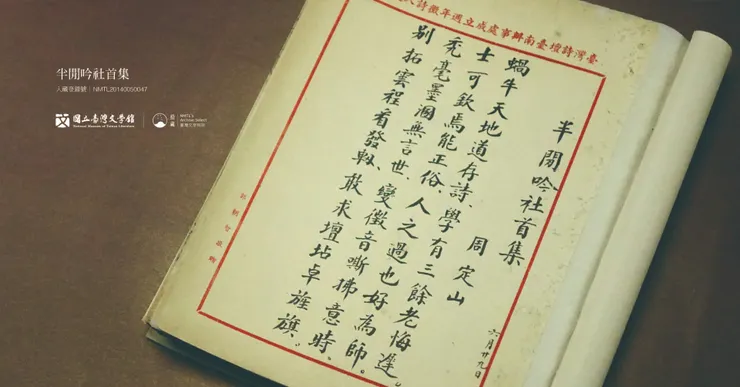 半閒吟社首集
入藏登錄號｜NMTL20140050047
國立臺灣文學館
National Museum of Taiwan Literature
拾藏
NMTL's
Archive Select
臺灣文學物語
臺灣詩壇臺南辦事處成立週年徵詩
半閒吟社首集
周定山
六月廿九日
蝸牛天地道存詩、學有三餘老悔遲。
士可欽焉能正俗、人之過也好為師。
禿毫墨涸無言世、變徵音嘶拂意時、
別拓雲程看發軔、敢求壇坫卓旌旗。